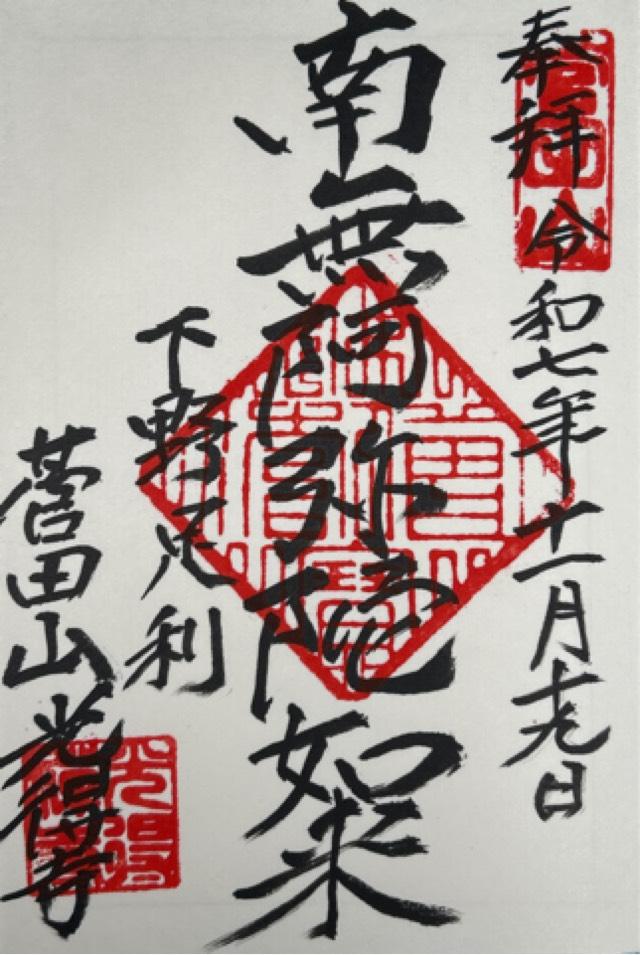 奉拝 令和七年十一月十九日
南無阿弥陀如来
下野足利
菅田山光得寺